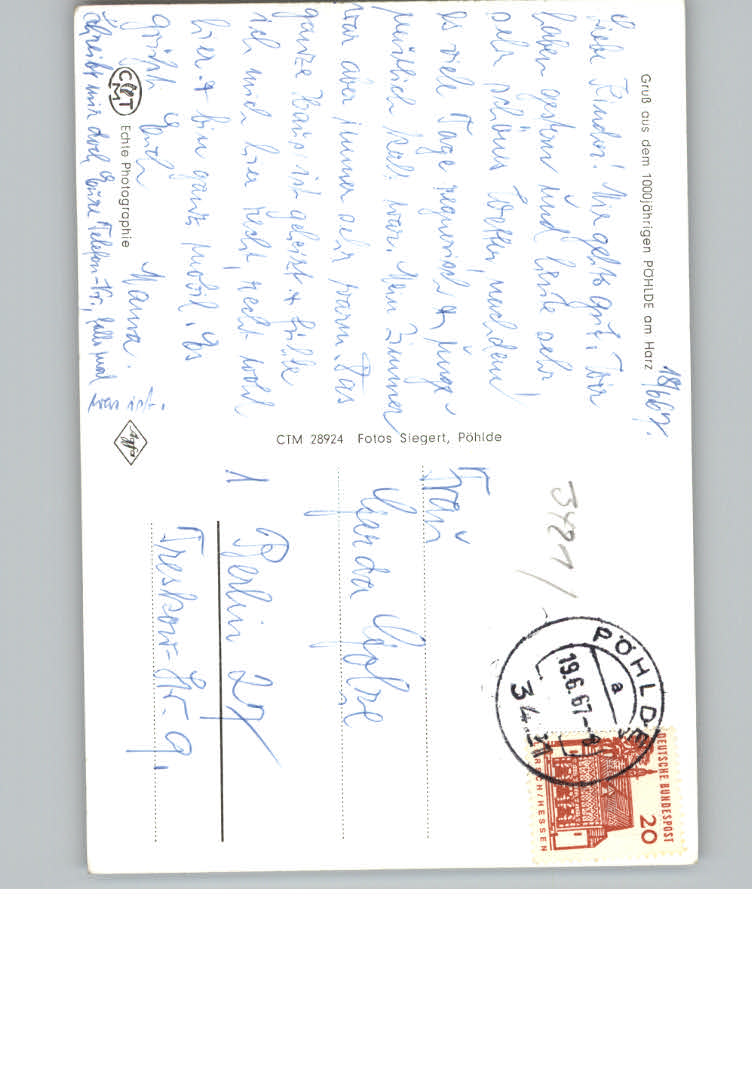 Gruß aus dem 1000jährigen PÖHLDE am Harz
18/6 67.
Liebe Kinder! Mir gehts gut. Wir
haben gestern und heute sehr
sehr schönes Wetter, nachdem
es viele Tage regnerisch & unge-
mütlich kalt war. Mein Zimmer
war aber immer sehr warm. Das
ganze Haus ist geheizt & fühle
ich mich hier recht, recht wohl
hier & bin ganz mobil. Es
grüßt Euch
Mama.
Schreibt mir doch Eure Telefon-Nr., falls mal
was ist.
CMT
Echte Photographie
Agfa
CTM 28924 Fotos Siegert, Pöhlde
3421/
Frau
Gerda
1 Berlin 27
Treskow-Str. 9,
PÖHLDE
a
19.6.67-8
3421
DEUTSCHE BUNDESPOST
20
LORSCH/HESSEN